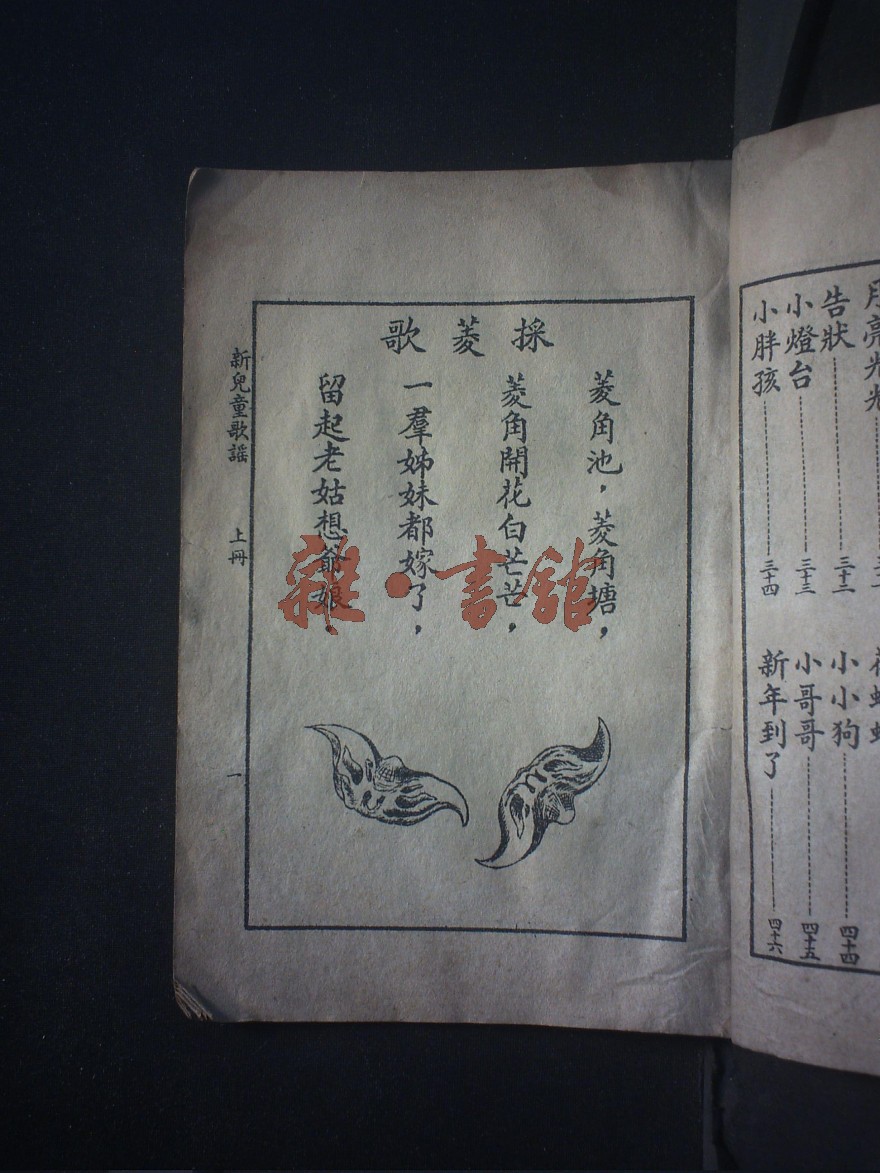 告狀 三十二
小燈台 三十三
小胖孩 三十四
小小狗 四十四
小哥哥 四十五
新年到了 四十六
採菱歌
菱角池，菱角塘，
菱角開花白芒芒，
一羣姊妹都嫁了，
留起老姑想爺娘，
新兒童歌謠 上冊
一
雜·書館